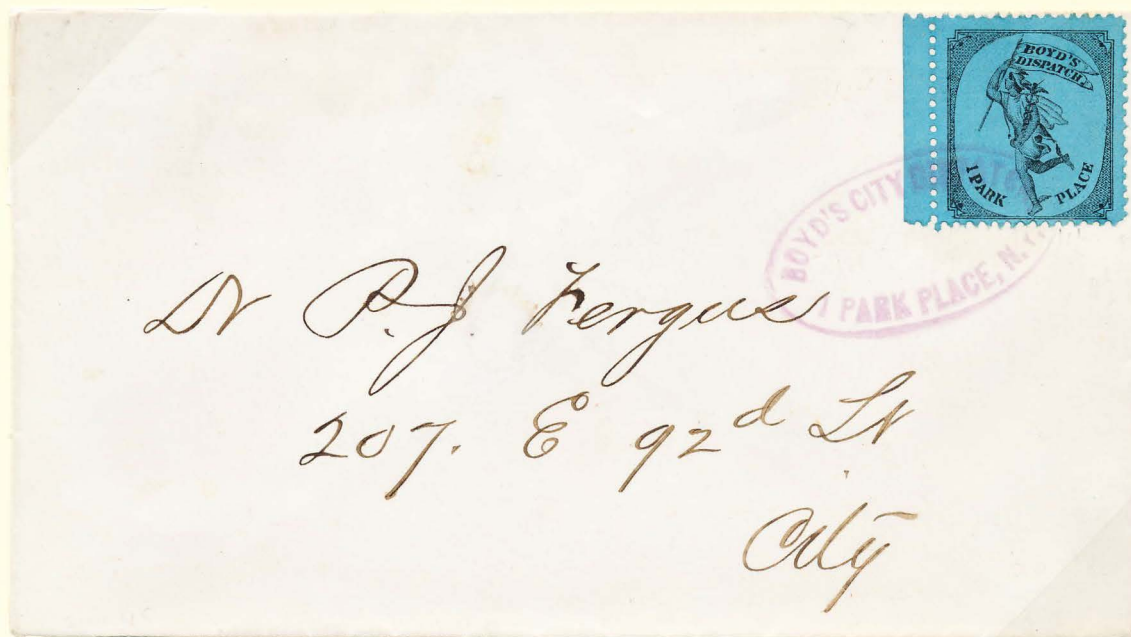 BOYD'S
DISPATCH
1 PARK PLACE
BOYD'S CITY
1 PARK PLACE, N.Y.
Dr P. J. Fergus
207. E 92d St
City